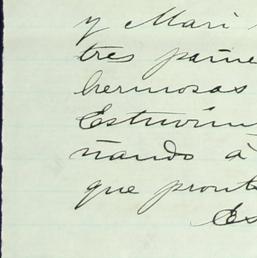 y Mari
tres
hermosas
Estuvim
ñando á
que pront
Es